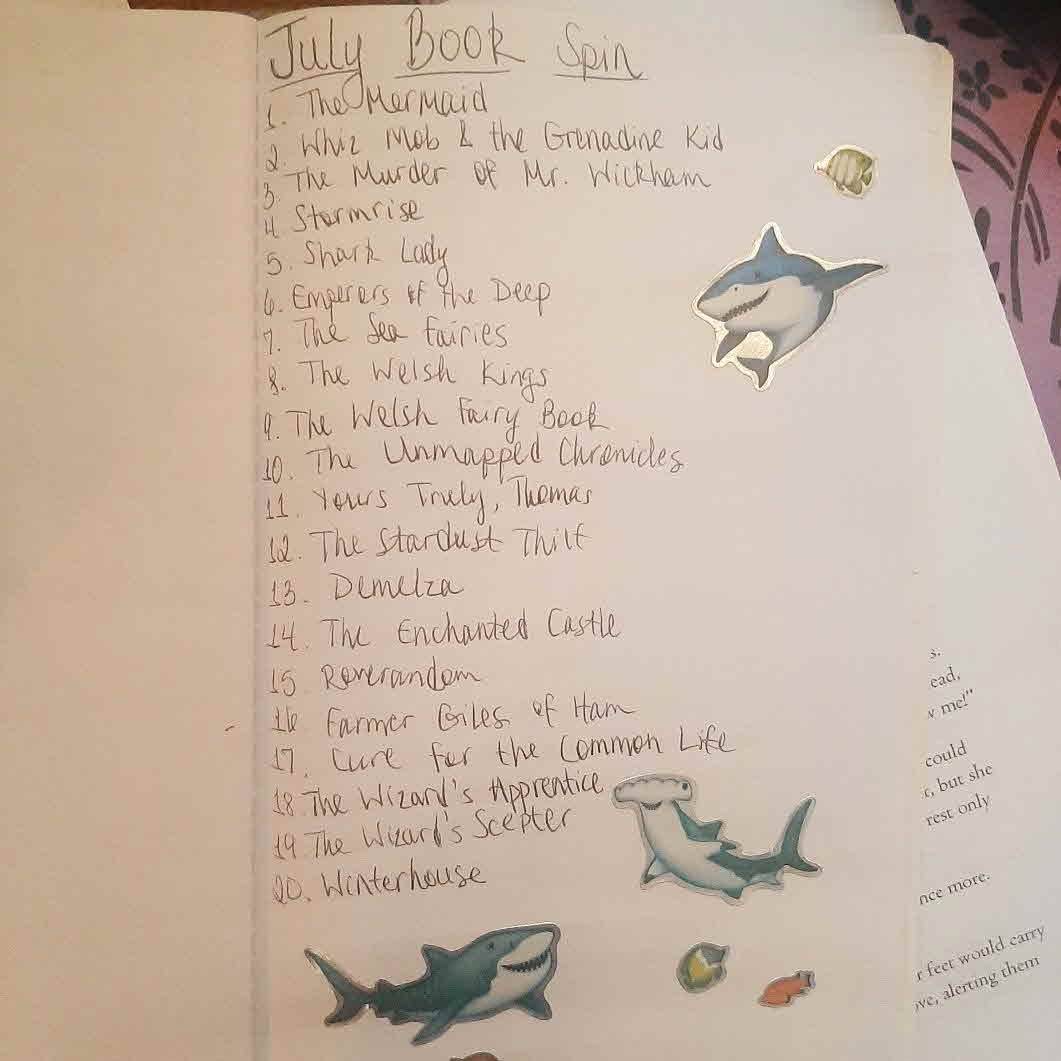 July Book Spin
1. The Mermaid
2. Whiz Mob & the Grenadine Kid
3. The Murder of Mr. Wickham
4. Stormrise
5. Shark Lady
6. Emperors of the Deep
7. The Sea Fairies
8. The Welsh Kings
9. The Welsh Fairy Book
10. The Unmapped Chronicles
11. Yours Truly, Thomas
12. The Stardust Thief
13. Demelza
14. The Enchanted Castle
15. Roverandom
16. Farmer Giles of Ham
17. Cure for the Common Life
18. The Wizard's Apprentice
19. The Wizard's Scepter
20. Winterhouse
s.
ead,
me!"
could
r, but she
rest only
nce more.
r feet would carry
ove, alerting them